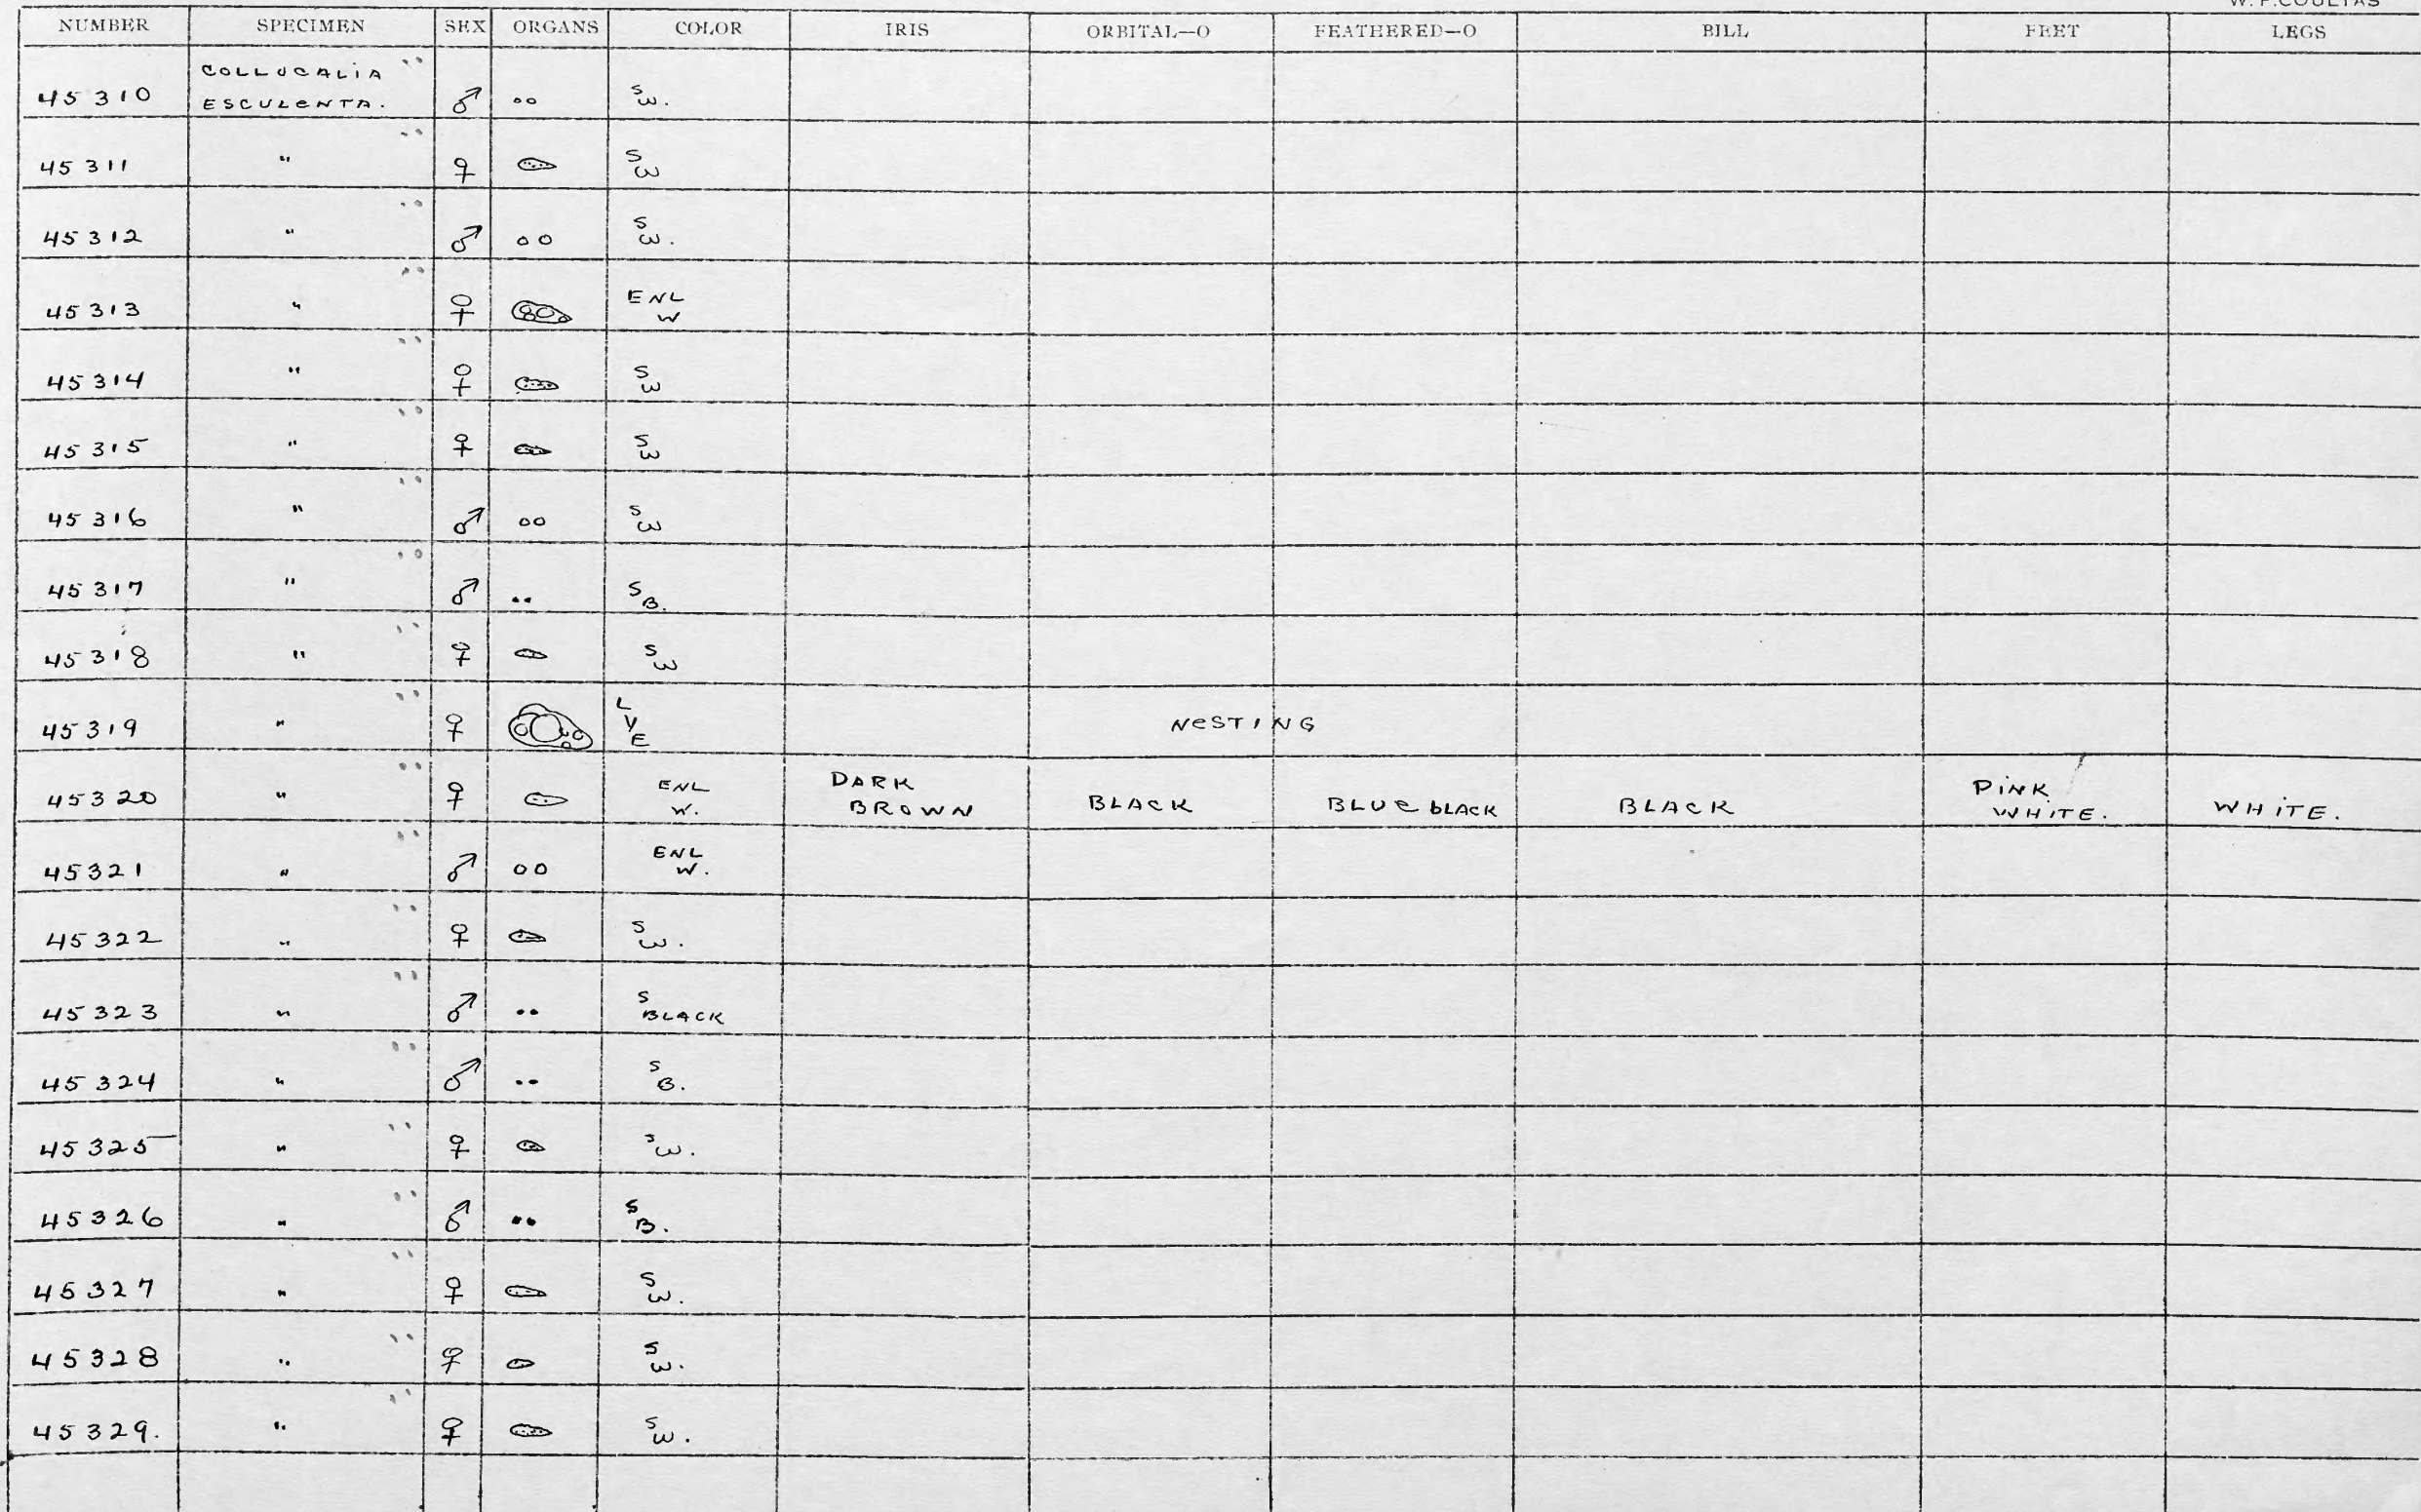 W. F. COULTAS
NUMBER SPECIMEN SEX ORGANS COLOR IRIS ORBITAL—O FEATHERED—O BILL FEET LEGS
COLLOCALIA "
45310 ESCULENTA. ♂ S W.
45311 " ♀ S W
45312 " ♂ S W.
45313 " ♀ ENL W
45314 " ♀ S W
45315 " ♀ S W
45316 " ♂ S W
45317 " ♂ S B.
45318 " ♀ S W
45319 " ♀ L V E NESTING
45320 " ♀ ENL W. DARK BROWN BLACK BLUE BLACK BLACK PINK WHITE. WHITE.
45321 " ♂ ENL W.
45322 " ♀ S W.
45323 " ♂ S BLACK
45324 " ♂ S B.
45325 " ♀ S W.
45326 " ♂ S B.
45327 " ♀ S W.
45328 " ♀ S W.
45329. " ♀ S W.